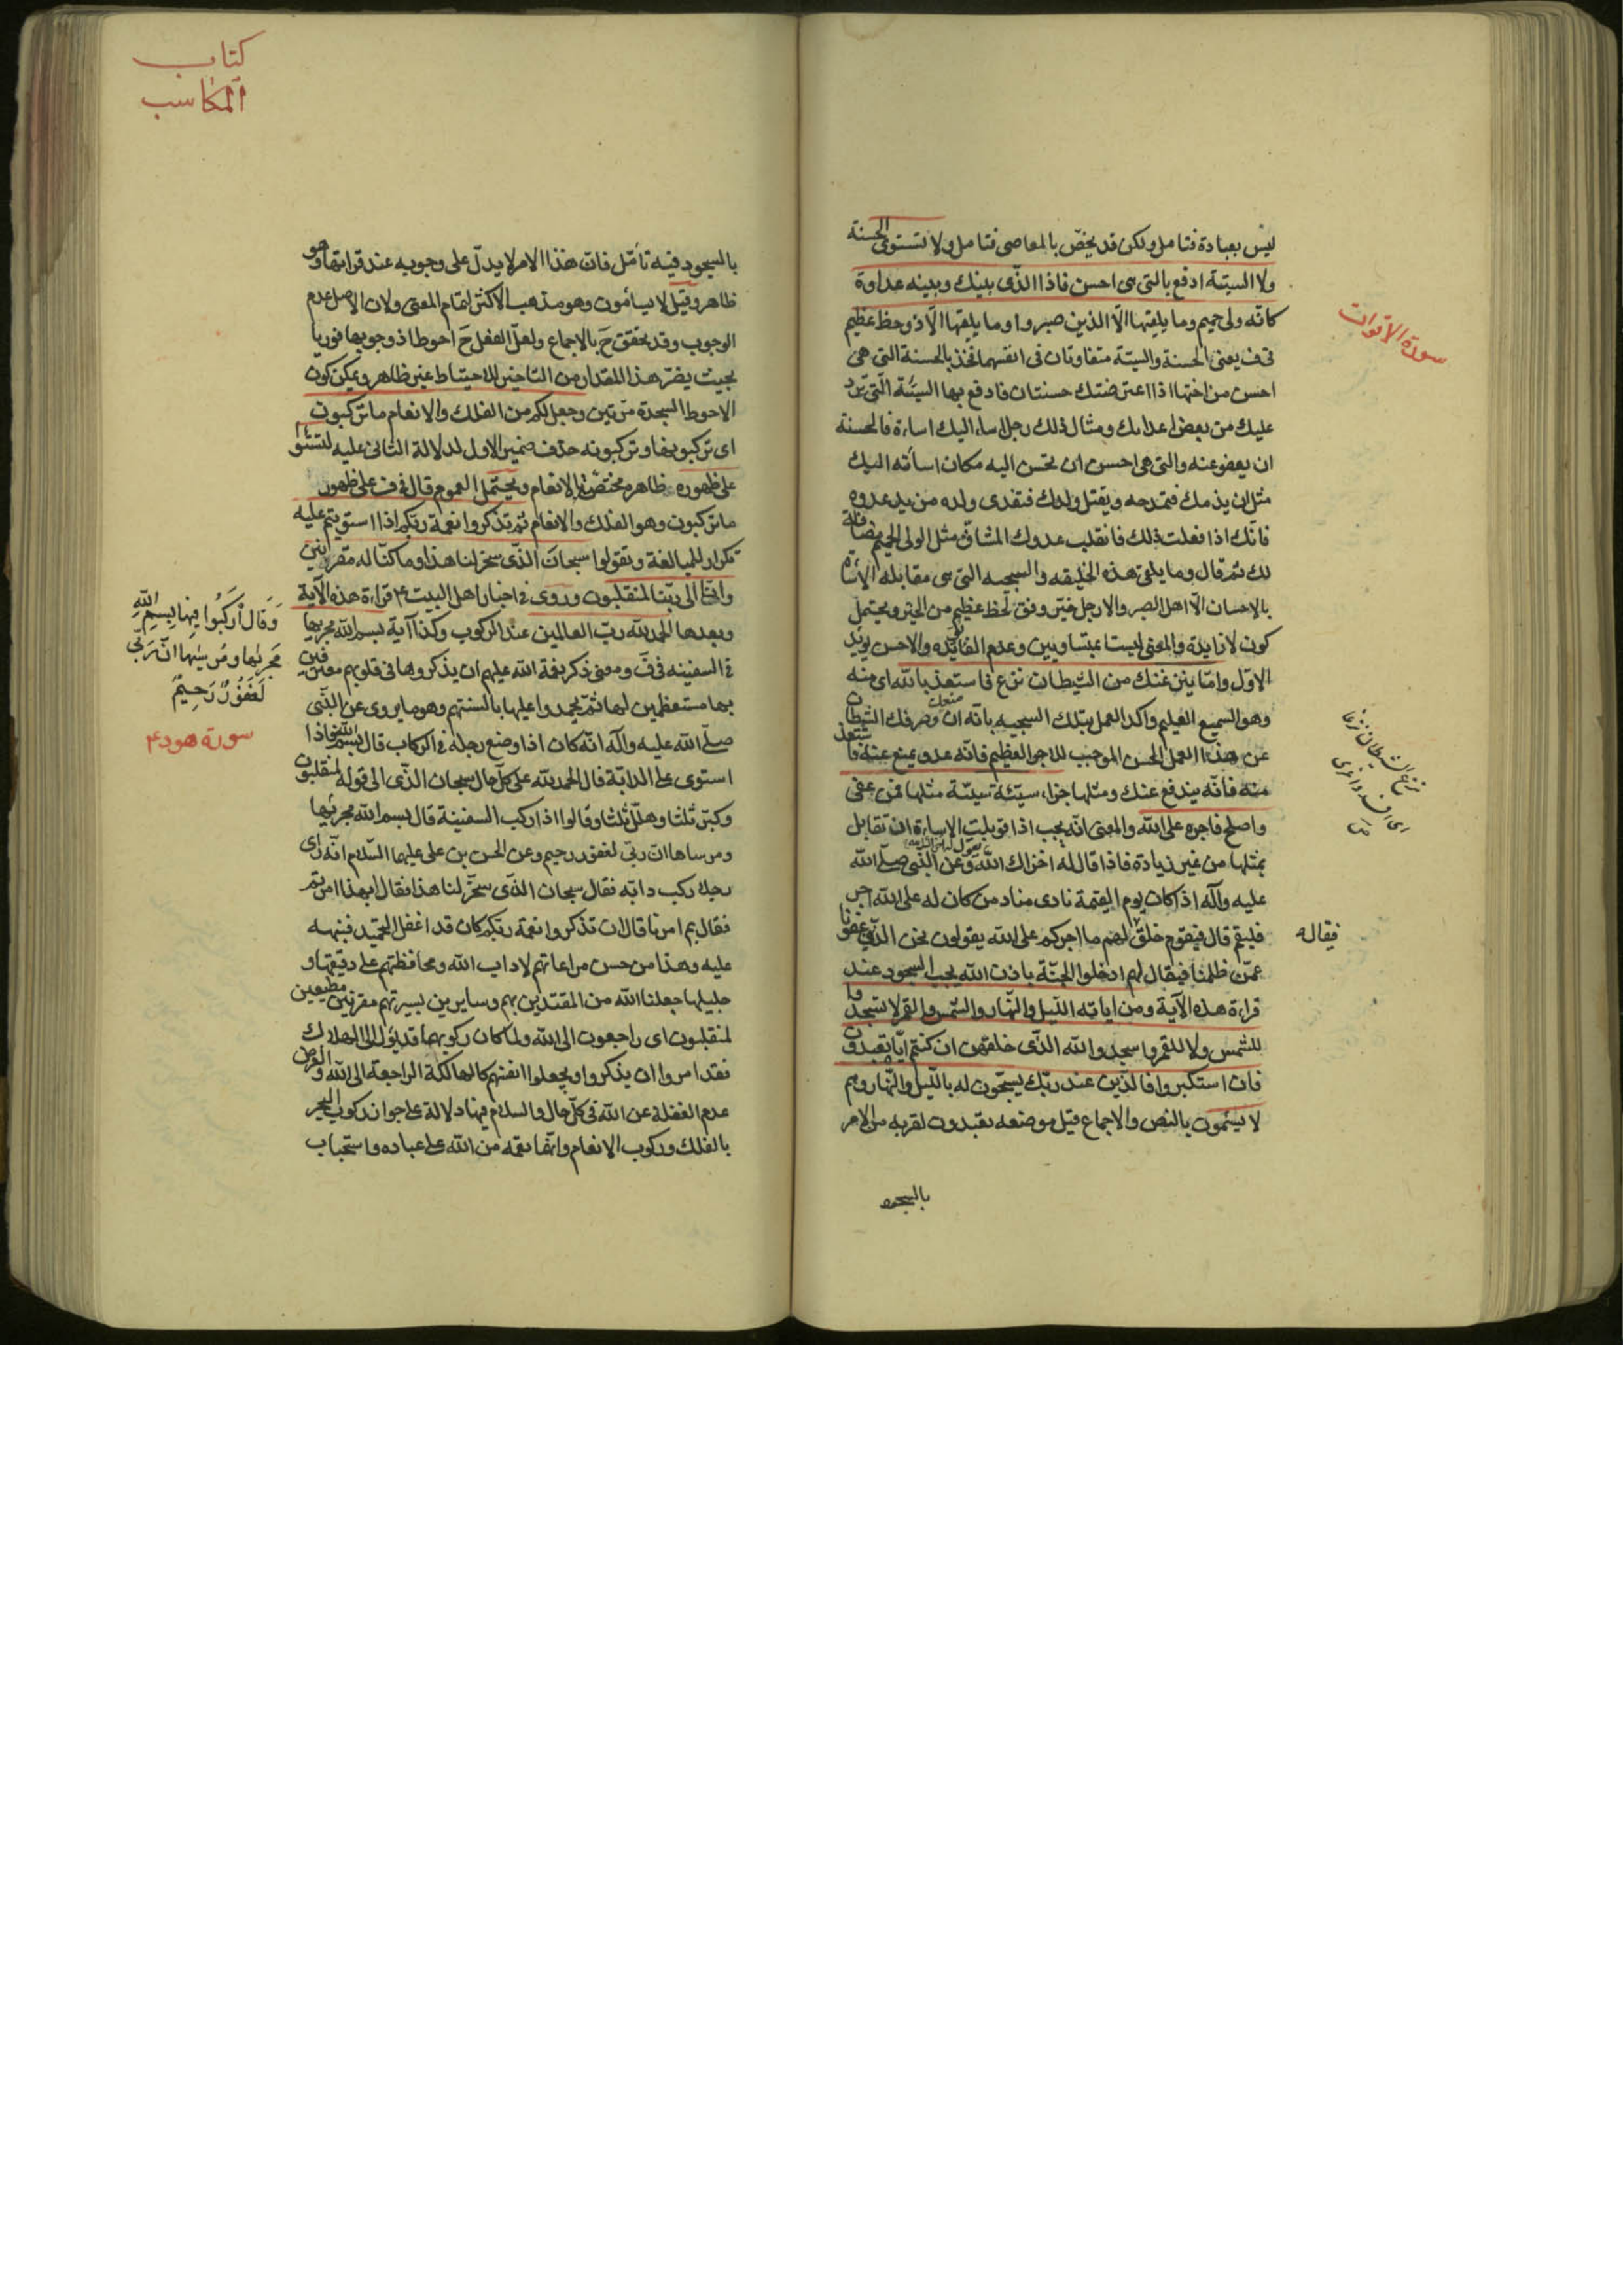 ليس بعبادة فتامل ولكن قد يخصّ بالمعاصى فتامل ولا تستوى الحسنة
ولا السيئة ادفع بالتى هى احسن فاذا الذى بينك وبينه عداوة
كانّه ولى حميم وما يلقيها الّا الذين صبروا وما يلقيها الّا ذو حظ عظيم
فى ف يعنى الحسنة والسيئة متفاوتان فى انفسهما فخذ بالحسنة التى هى
احسن من اختها اذا اعترضتك حسنتان فادفع بها السيّئة الّتى ترد
عليك من بعض اعدائك ومثال ذلك رجل اساء اليك اساءة فالحسنة
ان يعفو عنه والتى هى احسن ان تحسن اليه مكان اسائته اليك
مثل ان يذمك فتمدحه ويقتل ولدك فتفدى ولده من يد عدوه
فانّك اذا فعلت ذلك فانقلب عدوك المشاقّ مثل الولى الحميم مصافاة
لك ثم قال وما يلقى هذه الخليقه والسجيه التى هى مقابله الاساءة
بالاحسان الّا اهل الصبر والا رجل خيّر وفق لحظ عظيم من الخير ويحتمل
كون لا زايدة والمعنى ليستا بمتساويين وعدم الفايده والاحسن يؤيد
الاوّل وامّا ينزغنك من الشيطان نزغ فاستعذ بالله اى منه
وهو السميع العليم واكد العمل بتلك السجيه بانّه ان منعك وصرفك الشيطان
عن هذا العمل الحسن الموجب للاجر العظيم فانّه عدو يمنع عنه فاستعذ
منه فانّه يندفع عنك ومثلها جزاء سيّئة سيّئة مثلها فمن عفى
واصلح فاجره على الله والمعنى انّه يجب اذا قوبلت الاساءة ان تقابل
بمثلها من غير زيادة فاذا قال له اخزاك الله وعن النّبى صلّى الله
عليه وآله اذا كان يوم القيمة نادى مناد من كان له على الله اجر
فليقم قال فيقوم خلق لهم ما اجركم على الله يقولون نحن الذين عفونا
عمّن ظلمنا فيقال لهم ادخلوا الجنّة باذن الله يجب السجود عند
قراءة هذه الآية ومن اياته الليل والنّهار والشمس والقمر لا تسجدوا
للشمس ولا للقمر واسجدوا لله الذى خلقهن ان كنتم ايّاه تعبدون
فان استكبروا فالذين عند ربّك يسبّحون له باللّيل والنّهار وهم
لا يسئمون بالنص والاجماع قيل موضعه تعبدون لقربه من الامر
بالسجود
سورة الاقوات
نزغ الشيطان نزغا
اى افسد واغرى
فيقاله
كتاب
المكاسب
بالسجود فيه تأمّل فان هذا الامر لا يدلّ على وجوبه عند قرائتها وهو
ظاهر وقيل لا يسأمون وهو مذهب الاكثر لتمام المعنى ولان الاصل عدم
الوجوب وقد تحقق ح بالاجماع ولعلّ الفعل ح احوط اذ وجوبها فوريا
بحيث يضرّ هذا المقدار من التاخير للاحتياط غير ظاهر ويمكن كون
الاحوط السجدة مرّتين وجعل لكم من الفلك والانعام ما تركبون
اى تركبو بها وتركبونه حذف ضمير الاول لدلالة الثانى عليه لتستووا
على ظهوره ظاهره مختصّة بالانعام ويحتمل العموم قال فى ف على ظهور
ما تركبون وهو الفلك والانعام ثم تذكروا نعمة ربّكم اذا استويتم عليه
تكرار للمبالغة وتقولوا سبحان الّذى سخر لنا هذا وما كنّا له مقرنين
وانّا الى ربّنا لمنقلبون وروى فى اخبار اهل البيت ع قراءة هذه الآية
وبعدها الحمد لله ربّ العالمين عند الركوب وكذا آية بسم الله مجريها
فى السفينه فى ف ومعنى ذكر نعمة الله عليهم ان يذكروها فى قلوبهم معترفين
بها مستعظمين لها ثمّ يحمدوا عليها بالسنتهم وهو ما يروى عن النّبى
صلّى الله عليه وآله انّه كان اذا وضع رجله فى الركاب قال بسم الله فاذا
استوى على الدابّة قال الحمد لله على كلّ حال سبحان الذّى الى قوله لمنقلبون
وكبّر ثلثا وهلّل ثلثا وقالوا اذا ركب السفينة قال بسم الله مجريها
ومرساها ان ربّى لغفور رحيم وعن الحسن بن على عليهما السّلام انّه راى
رجلا ركب دابّه فقال سبحان الذى سخّر لنا هذا فقال ابهذا امرتم
فقال بم امرنا قال ان تذكروا نعمة ربّكم كان قد اغفل التحميد فنبهه
عليه وهذا من حسن مراعاتهم لاداب الله ومحافظتهم على دقيقها و
جليلها جعلنا الله من المقتدين بهم وسايرين بسيرتهم مقرنين مطيعين
لمنقلبون اى راجعون الى الله ولما كان ركوبهما قد يؤل الى الهلاك
فقد امروا ان يذكروا ويجعلوا انفسهم كالهالكة الراجعة الى الله والغرض
عدم الغفلة عن الله فى كلّ حال والسلام فيها دلالة على جواز ركوب البحر
بالفلك وركوب الانعام وانّها نعمه من الله على عباده واستحباب
وَقَالَ ارْكَبُوا فِيهَا بِسِمِ اللهِ
مَجريها ومُرسيٰها انّ رَبّى
لَغَفُورٌ رَحِيمٌ
سورة هود ع